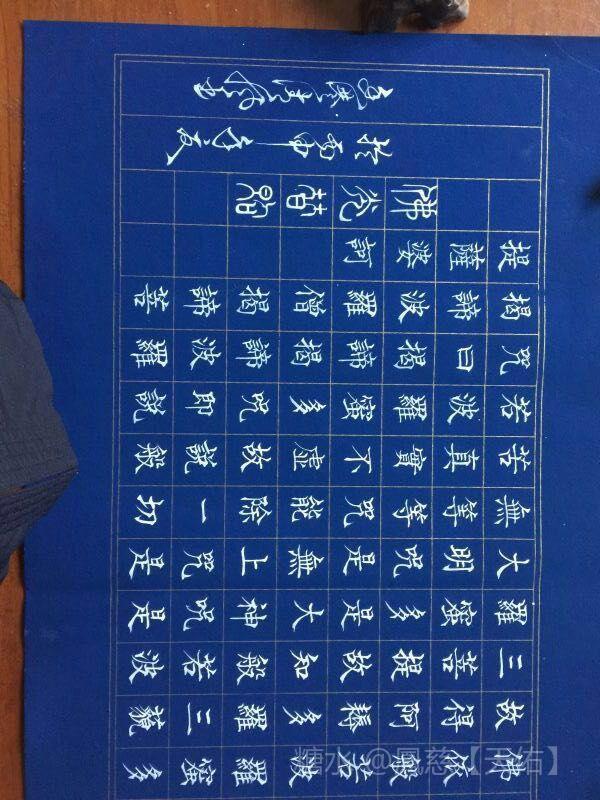 佛依般若波羅蜜多
故得阿耨多羅三藐
三菩提故知般若波
羅蜜多是大神咒是
大明咒是無上咒是
無等等咒能除一切
苦真實不虛故說般
若波羅蜜多咒即說
咒曰揭諦揭諦波羅
揭諦波羅僧揭諦菩
提薩婆訶
佛
於丙申夏
糖水 @凰慈【天佑】